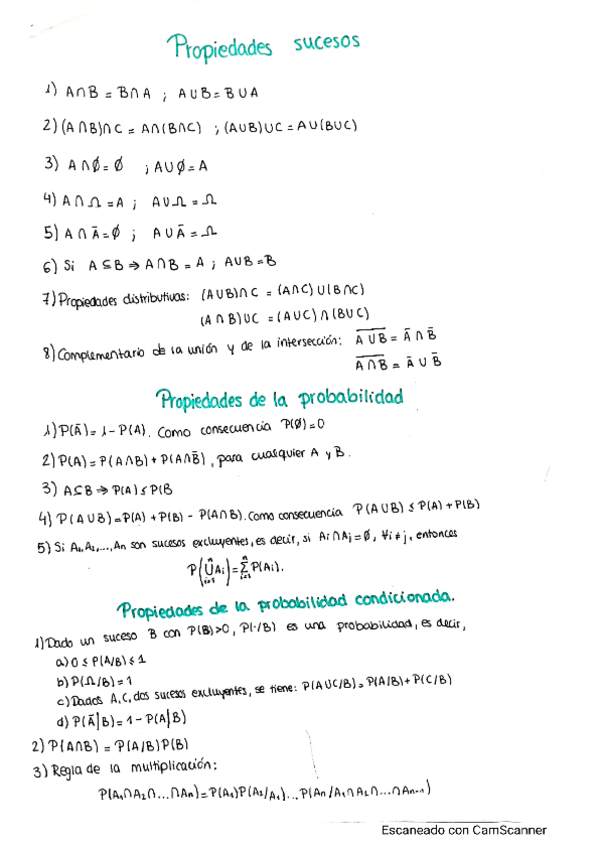 Propiedades sucesos
1) A∩B = B∩A ; A∪B = B∪A
2) (A∩B)∩C = A∩(B∩C) ; (A∪B)∪C = A∪(B∪C)
3) A∩Ø = Ø ; A∪Ø = A
4) A∩Ω = A ; A∪Ω = Ω
5) A∩Ā = Ø ; A∪Ā = Ω
6) Si A⊆B ⇒ A∩B = A ; A∪B = B
7) Propiedades distributivas: (A∪B)∩C = (A∩C)∪(B∩C)
(A∩B)∪C = (A∪C)∩(B∪C)
8) Complementario de la unión y de la intersección: \overline{A∪B} = Ā∩B̄
\overline{A∩B} = Ā∪B̄
Propiedades de la probabilidad
1) P(Ā) = 1 - P(A). Como consecuencia P(Ø) = 0
2) P(A) = P(A∩B) + P(A∩B̄), para cualquier A y B.
3) A⊆B ⇒ P(A) ≤ P(B
4) P(A∪B) = P(A) + P(B) - P(A∩B). Como consecuencia P(A∪B) ≤ P(A) + P(B)
5) Si A₁, A₂, ..., An son sucesos excluyentes, es decir, si Ai∩Aj = Ø, ∀i≠j, entonces
P(⋃ⁿᵢ₌₁ Ai) = ∑ⁿᵢ₌₁ P(Ai).
Propiedades de la probabilidad condicionada.
1) Dado un suceso B con P(B)>0, P(·/B) es una probabilidad, es decir,
a) 0 ≤ P(A/B) ≤ 1
b) P(Ω/B) = 1
c) Dados A, C, dos sucesos excluyentes, se tiene: P(A∪C/B) = P(A/B) + P(C/B)
d) P(Ā|B) = 1 - P(A|B)
2) P(A∩B) = P(A/B)P(B)
3) Regla de la multiplicación:
P(A₁∩A₂∩...∩An) = P(A₁)P(A₂/A₁)...P(An/A₁∩A₂∩...∩An-1)
Escaneado con CamScanner